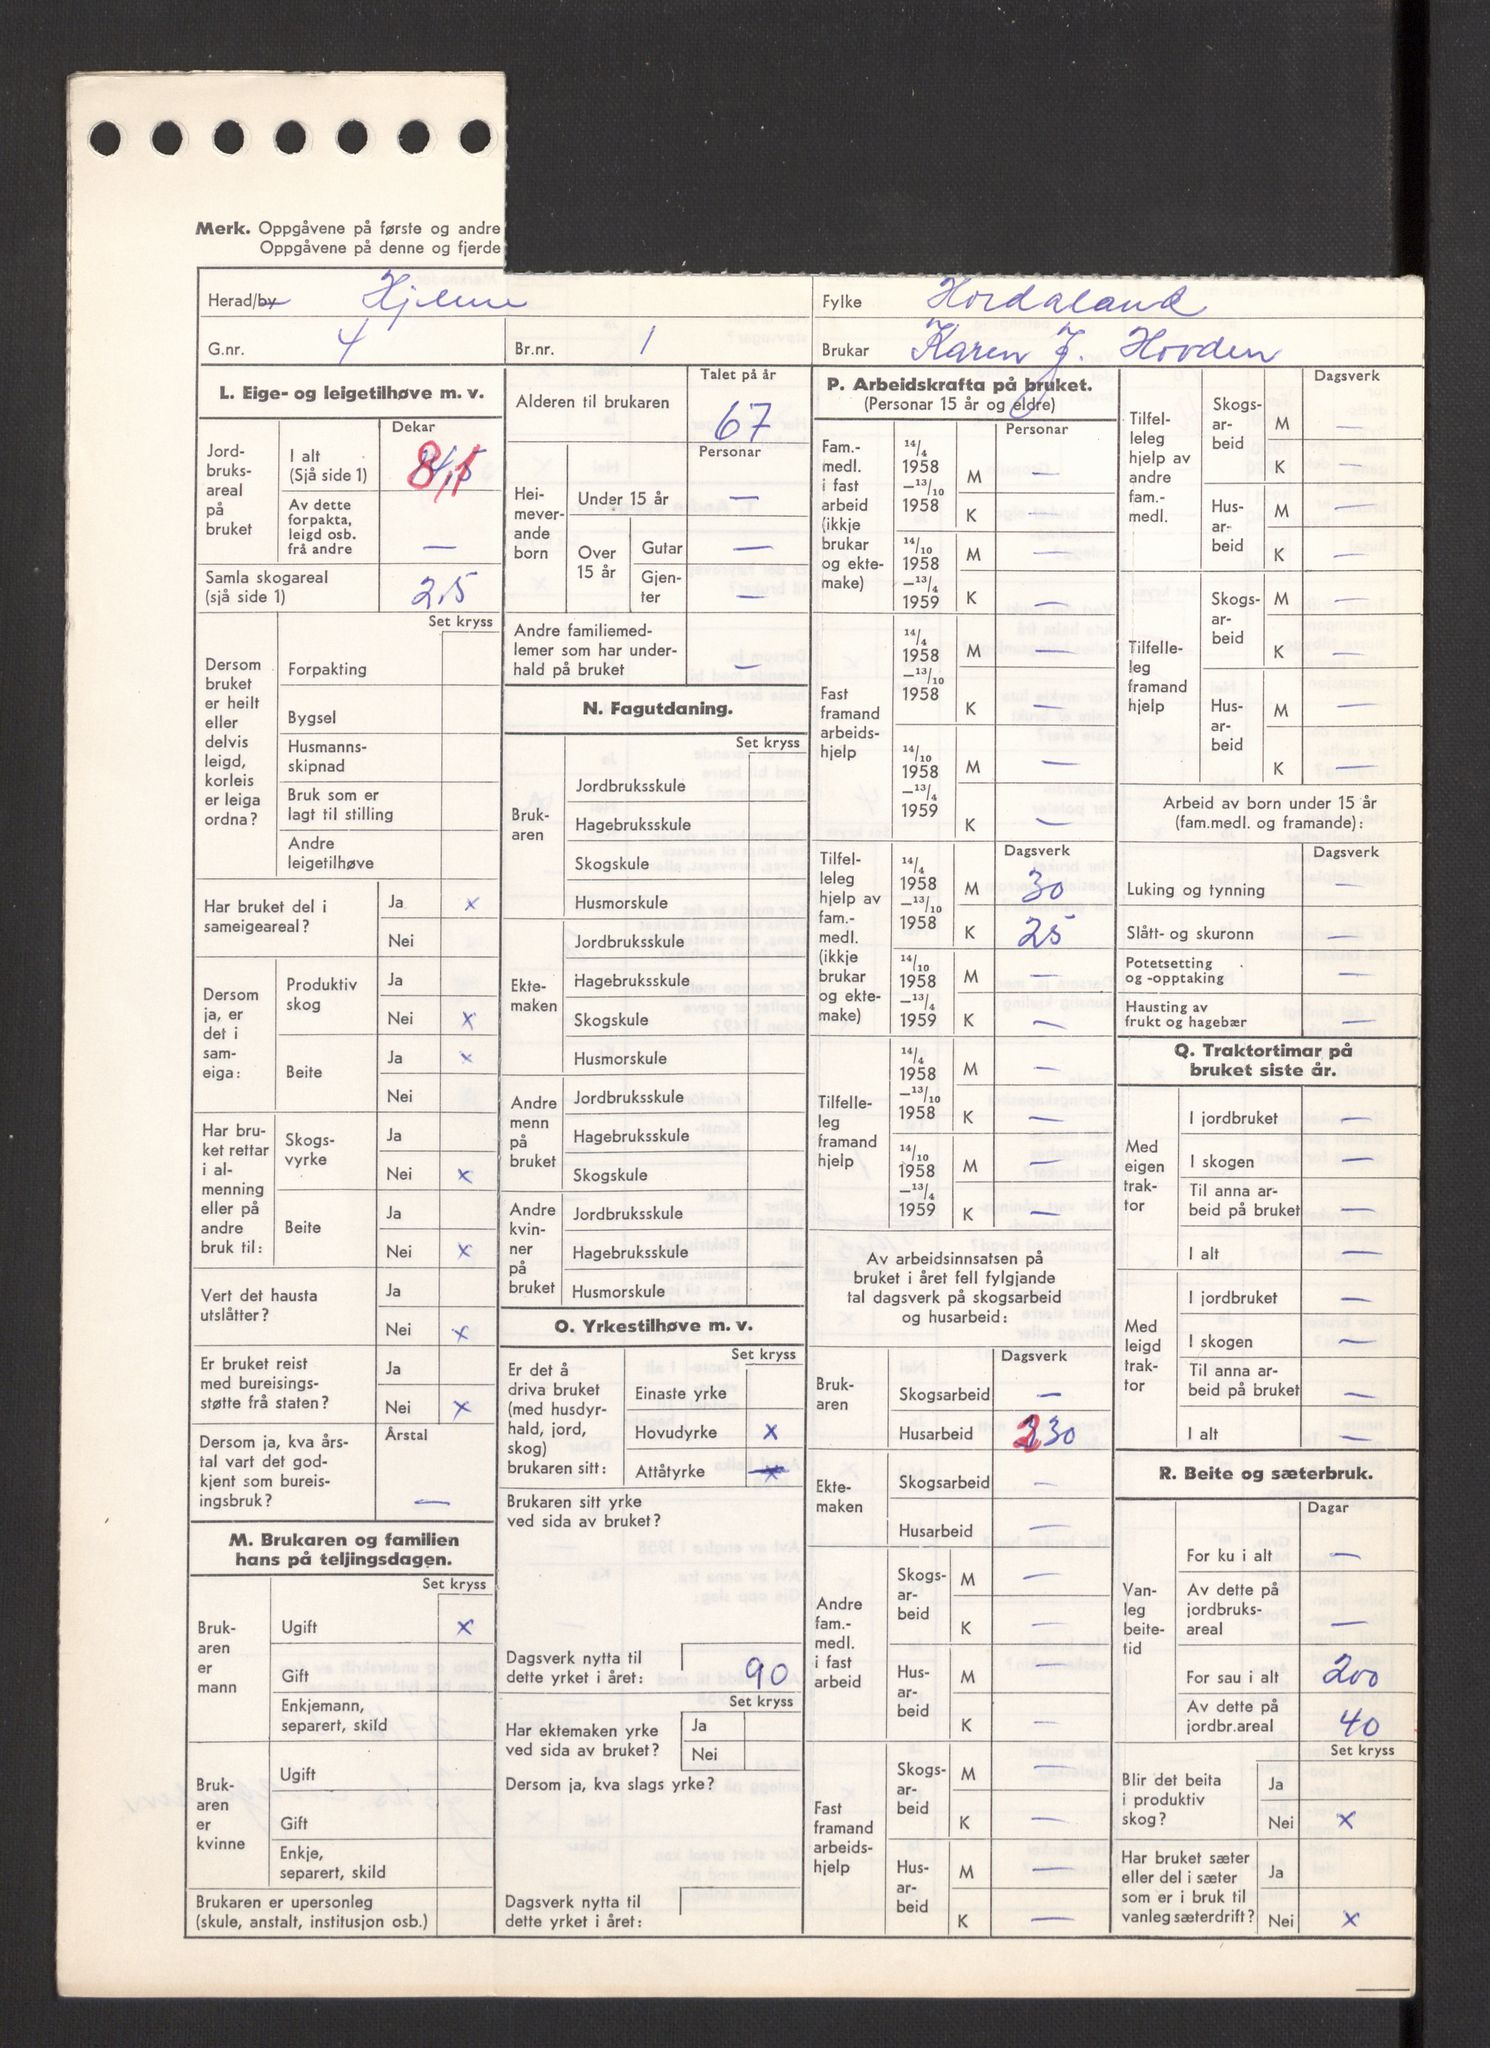 Merk. Oppgåvene på første og andre
Oppgåvene på denne og fjerde
Herad/by Hjelme
Fylke Hordaland
G.nr. 4
Br.nr. 1
Brukar Karen J. Hovden
L. Eige- og leigetilhøve m. v.
Dekar
Jord-
bruks-
areal
på
bruket
I alt
(Sjå side 1) 8,1
Av dette
forpakta,
leigd osb.
frå andre —
Samla skogareal
(sjå side 1) 2,5
Set kryss
Dersom
bruket
er heilt
eller
delvis
leigd,
korleis
er leiga
ordna?
Forpakting
Bygsel
Husmanns-
skipnad
Bruk som er
lagt til stilling
Andre
leigetilhøve
Har bruket del i
sameigeareal?
Ja x
Nei
Dersom
ja, er
det i
sam-
eiga:
Produktiv
skog
Ja
Nei x
Beite
Ja x
Nei
Har bru-
ket rettar
i al-
menning
eller på
andre
bruk til:
Skogs-
vyrke
Ja
Nei x
Beite
Ja
Nei x
Vert det hausta
utslåtter?
Ja
Nei x
Er bruket reist
med bureisings-
støtte frå staten?
Ja
Nei x
Dersom ja, kva års-
tal vart det god-
kjent som bureis-
ingsbruk?
Årstal
—
M. Brukaren og familien
hans på teljingsdagen.
Set kryss
Bruk-
aren
er
mann
Ugift x
Gift
Enkjemann,
separert, skild
Bruk-
aren
er
kvinne
Ugift
Gift
Enkje,
separert, skild
Brukaren er upersonleg
(skule, anstalt, institusjon osb.)
Talet på år
Alderen til brukaren 67
Personar
Hei-
mever-
ande
born
Under 15 år —
Over
15 år
Gutar —
Gjen-
ter —
Andre familiemed-
lemer som har under-
hald på bruket —
N. Fagutdaning.
Set kryss
Bruk-
aren
Jordbruksskule
Hagebruksskule
Skogskule
Husmorskule
Ekte-
maken
Jordbruksskule
Hagebruksskule
Skogskule
Husmorskule
Andre
menn
på
bruket
Jordbruksskule
Hagebruksskule
Skogskule
Andre
kvin-
ner
på
bruket
Jordbruksskule
Hagebruksskule
Husmorskule
O. Yrkestilhøve m. v.
Set kryss
Er det å
driva bruket
(med husdyr-
hald, jord,
skog)
brukaren sitt:
Einaste yrke
Hovudyrke x
Attåtyrke x
Brukaren sitt yrke
ved sida av bruket?
Dagsverk nytta til
dette yrket i året: 90
Set kryss
Har ektemaken yrke
ved sida av bruket?
Ja
Nei
Dersom ja, kva slags yrke?
Dagsverk nytta til
dette yrket i året:
P. Arbeidskrafta på bruket.
(Personar 15 år og eldre)
Personar
Fam.-
medl.
i fast
arbeid
(ikkje
brukar
og ekte-
make)
14/4
1958
—13/10
1958
M —
K —
14/10
1958
—13/4
1959
M —
K —
Fast
framand
arbeids-
hjelp
14/4
1958
—13/10
1958
M —
K —
14/10
1958
—13/4
1959
M —
K —
Dagsverk
Tilfel-
leleg
hjelp av
fam.-
medl.
(ikkje
brukar
og ekte-
make)
14/4
1958
—13/10
1958
M 30
K 25
14/10
1958
—13/4
1959
M —
K —
Tilfelle-
leg
framand
hjelp
14/4
1958
—13/10
1958
M —
K —
14/10
1958
—13/4
1959
M —
K —
Av arbeidsinnsatsen på
bruket i året fell fylgjande
tal dagsverk på skogsarbeid
og husarbeid:
Dagsverk
Bruk-
aren
Skogsarbeid —
Husarbeid 230
Ekte-
maken
Skogsarbeid —
Husarbeid —
Andre
fam.-
medl.
i fast
arbeid
Skogs-
ar-
beid
M —
K —
Hus-
ar-
beid
M —
K —
Fast
framand
arbeids-
hjelp
Skogs-
ar-
beid
M —
K —
Hus-
ar-
beid
M —
K —
Dagsverk
Tilfel-
leleg
hjelp av
andre
fam.-
medl.
Skogs-
ar-
beid
M —
K —
Hus-
ar-
beid
M —
K —
Tilfelle-
leg
framand
hjelp
Skogs-
ar-
beid
M —
K —
Hus-
ar-
beid
M —
K —
Arbeid av born under 15 år
(fam.medl. og framande):
Dagsverk
Luking og tynning —
Slått- og skuronn —
Potetsetting
og -opptaking —
Hausting av
frukt og hagebær —
Q. Traktortimar på
bruket siste år.
Med
eigen
trak-
tor
I jordbruket —
I skogen —
Til anna ar-
beid på bruket —
I alt —
Med
leigd
trak-
tor
I jordbruket —
I skogen —
Til anna ar-
beid på bruket —
I alt —
R. Beite og sæterbruk.
Dagar
Van-
leg
beite-
tid
For ku i alt —
Av dette på
jordbruks-
areal —
For sau i alt 200
Av dette på
jordbr.areal 40
Set kryss
Blir det beita
i produktiv
skog?
Ja
Nei x
Har bruket sæter
eller del i sæter
som er i bruk til
vanleg sæterdrift?
Ja
Nei x